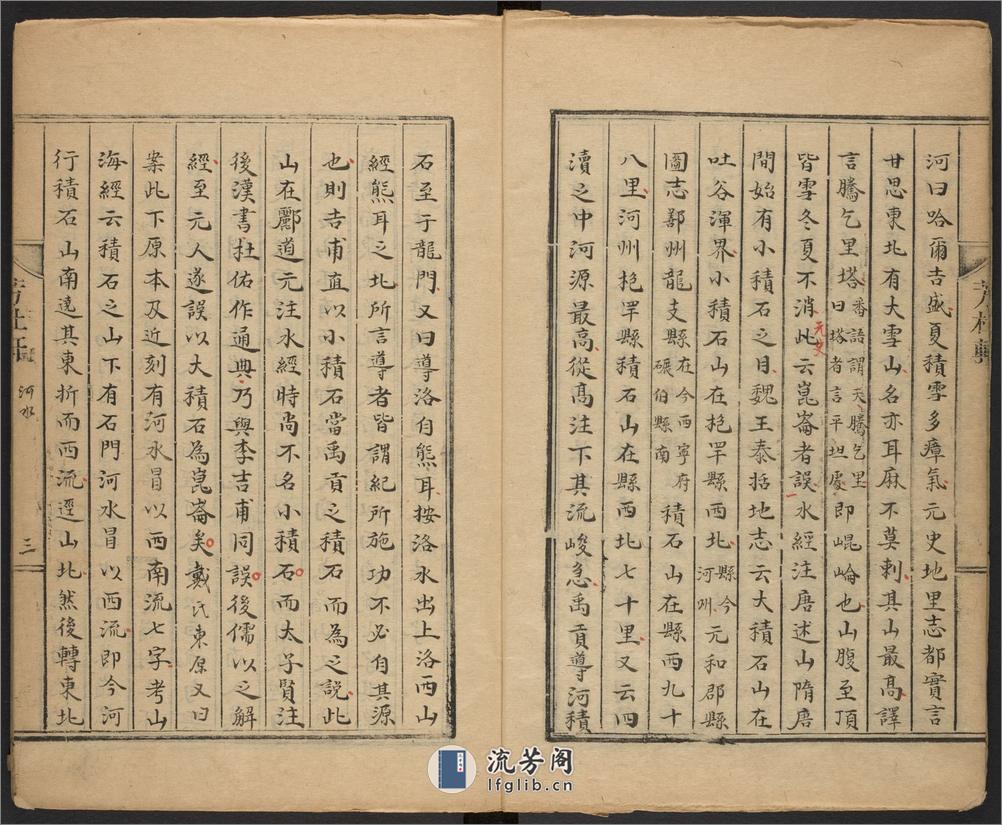 河曰哈爾吉盛夏積雪多瘴氣元史地里志都實言
廿思東北有大雪山名亦耳麻不莫剌其山最高譯
言騰乞里塔番語謂天騰乞里曰塔者言平坦處即崐崘也山腹至頂
皆雪冬夏不消此云崑崙者誤水經注唐述山隋唐
元史
間始有小積石之目魏王泰括地志云大積石山在
吐谷渾界小積石山在抱罕縣西北縣今河州元和郡縣
圖志鄯州龍支縣在今西寧府碾伯縣南積石山在縣西九十
八里河州抱罕縣積石山在縣西北七十里又云四
瀆之中河源最高從高注下其流峻急禹貢導河積
芳杜軒
石至于龍門又曰導洛自熊耳按洛水出上洛西山
經熊耳之北所言導者皆謂紀所施功不必自其源
也則吉甫直以小積石當禹貢之積石而為之說此
山在酈道元注水經時尚不名小積石而太子賢注
後漢書杜佑作通典乃與李吉甫同誤後儒以之解
經至元人遂誤以大積石為崑崙矣戴氏東原又曰
案此下原本及近刻有河水冒以西南流七字考山
海經云積石之山下有石門河水冒以西流即今河
行積石山南遶其東折而西流逕山北然後轉東北
芳杜軒
河水
三
流芳阁
lfglib.cn